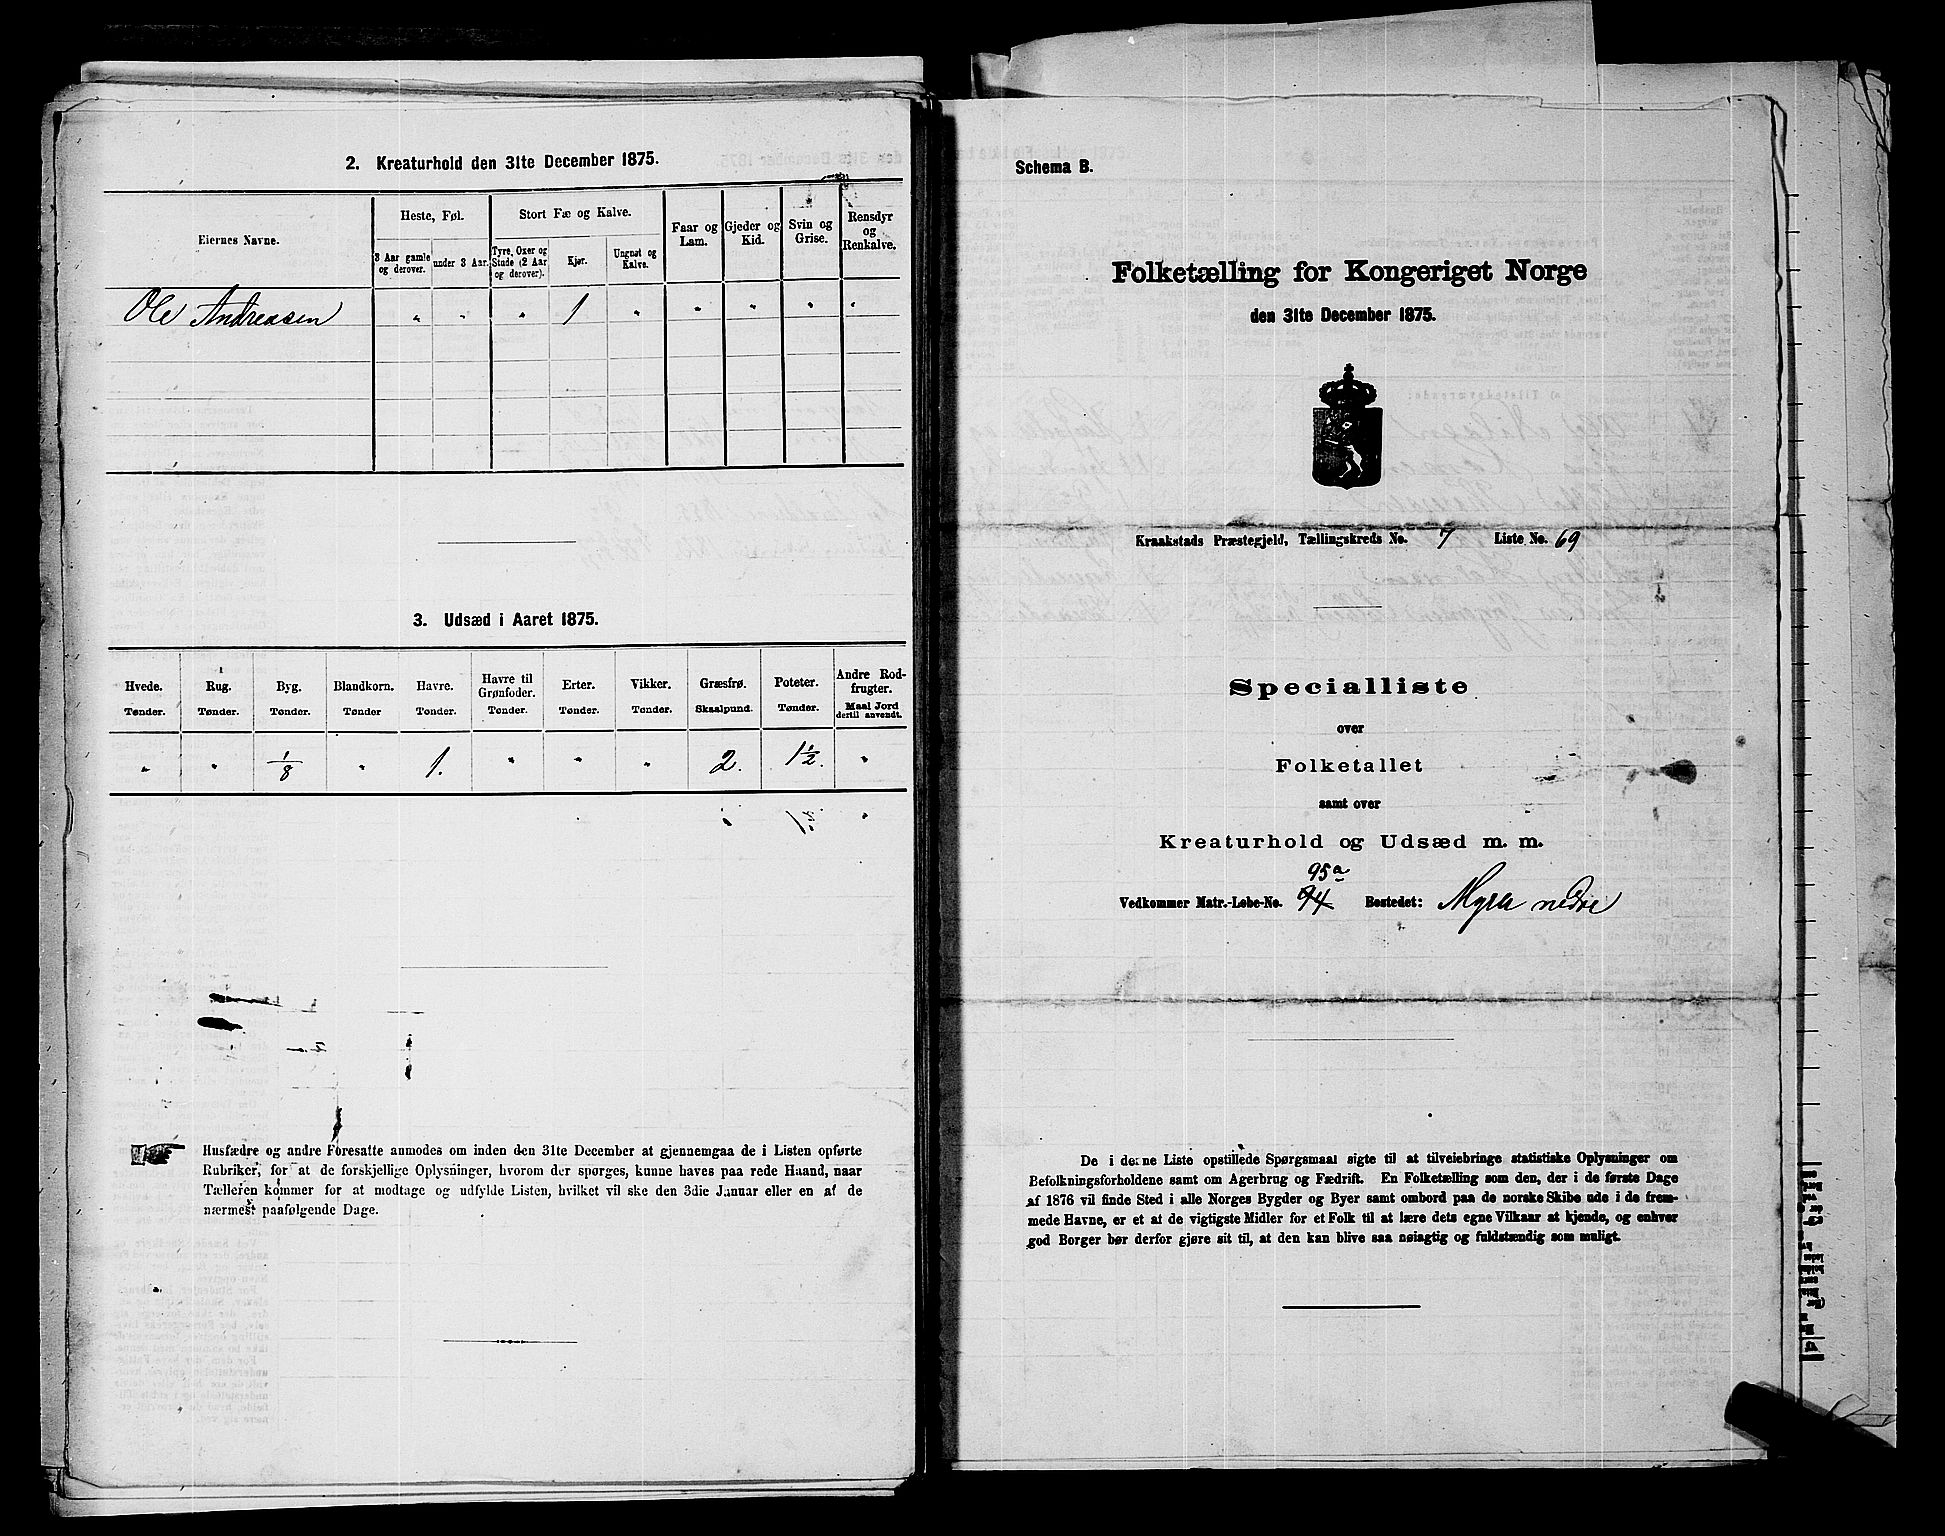 2. Kreaturhold den 31te December 1875.
Eiernes Navne.
Heste, Føl.
3 Aar gamle og derover.
under 3 Aar.
Stort Fæ og Kalve.
Tyre, Oxer og Stude (2 Aar og derover).
Kjør.
Ungnøt og Kalve.
Faar og Lam.
Gjeder og Kid.
Svin og Grise.
Rensdyr og Renkalve.
Ole Andreasen " " " 1 " " " " "
3. Udsæd i Aaret 1875.
Hvede. Rug. Byg. Blandkorn. Havre. Havre til Grønfoder. Erter. Vikker. Græsfrø. Poteter. Andre Rodfrugter.
Tønder. Tønder. Tønder. Tønder Tønder. Tønder. Tønder. Tønder. Skaalpund. Tønder. Maal Jord dertil anvendt.
" " 1/8 " 1. " " " 2. 1 1/2. "
Husfædre og andre Foresatte anmodes om inden den 31te December at gjennemgaa de i Listen opførte
Rubriker, for at de forskjellige Oplysninger, hvorom der spørges, kunne haves paa rede Haand, naar
Tælleren kommer for at modtage og udfylde Listen, hvilket vil ske den 3die Januar eller en af de
nærmest paafølgende Dage.
Schema B.
Folketælling for Kongeriget Norge
den 31te December 1875.
Kraakstads Præstegjeld, Tællingskreds No. 7 Liste No. 69
Specialliste
over
Folketallet
samt over
Kreaturhold og Udsæd m. m.
95a
Vedkommer Matr.-Løbe-No. 94 Bostedet: Myra nedre
De i denne Liste opstillede Spørgsmaal sigte til at tilveiebringe statistiske Oplysninger om
Befolkningsforholdene samt om Agerbrug og Fædrift. En Folketælling som den, der i de første Dage
af 1876 vil finde Sted i alle Norges Bygder og Byer samt ombord paa de norske Skibe ude i de frem-
mede Havne, er et af de vigtigste Midler for et Folk til at lære dets egne Vilkaar at kjende, og enhver
god Borger bør derfor gjøre sit til, at den kan blive saa nøiagtig og fuldstændig som muligt.